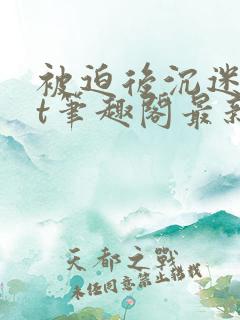 被迫后沉迷
t笔趣阁最新
天都之战
未经同意禁止转载